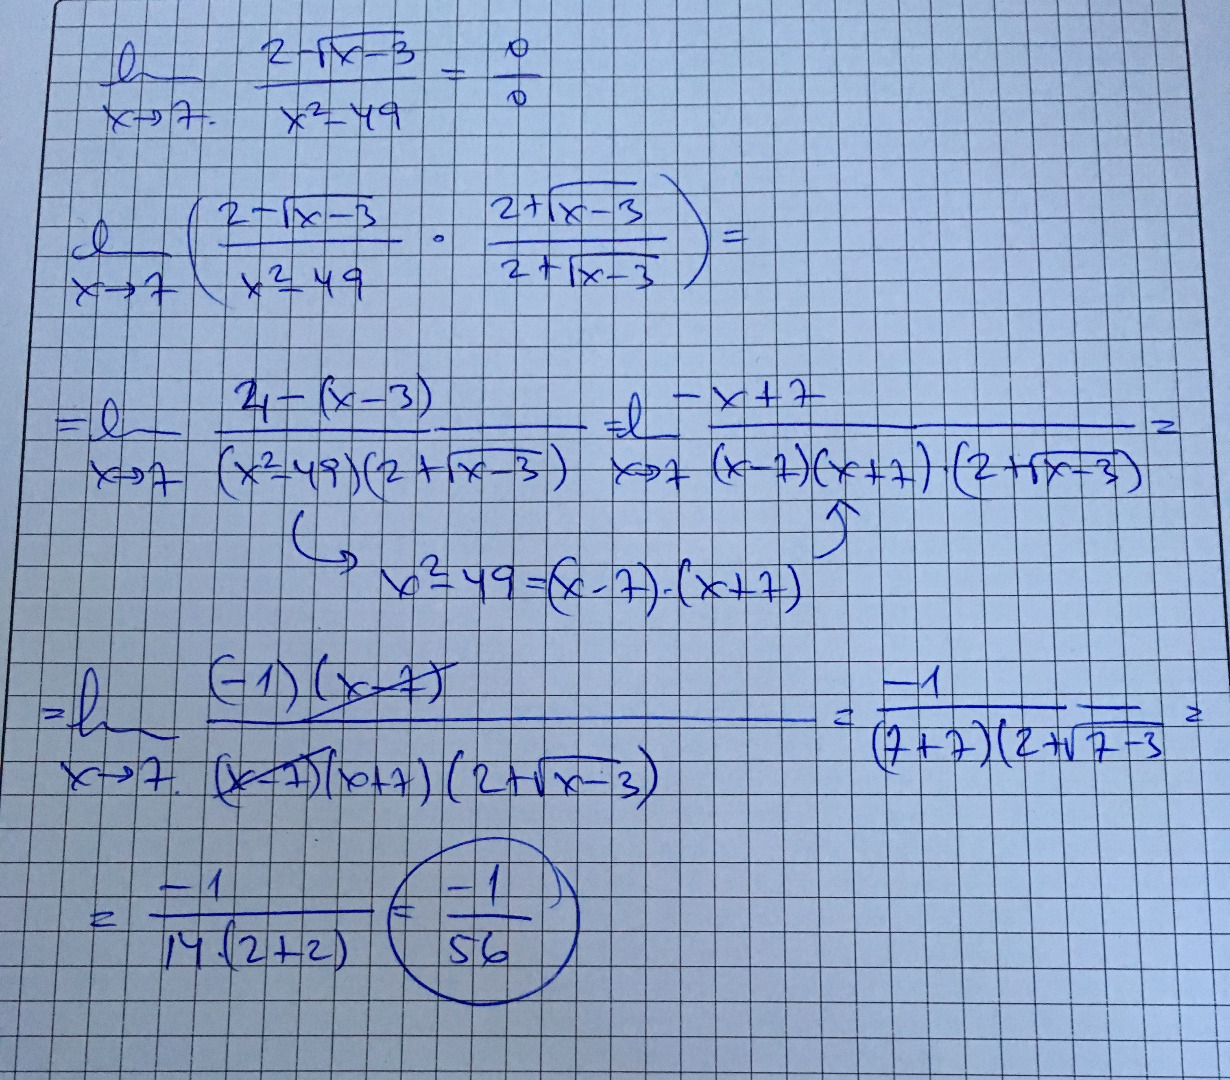 lim x→7 (2-√(x-3))/(x²-49) = 0/0
lim x→7 ((2-√(x-3))/(x²-49) · (2+√(x-3))/(2+√(x-3))) =
= lim x→7 (4-(x-3))/((x²-49)(2+√(x-3))) = lim x→7 (-x+7)/((x-7)(x+7)·(2+√(x-3))) =
x²-49=(x-7)·(x+7)
= lim x→7 ((-1)(x-7))/((x-7)(x+7)(2+√(x-3))) = -1/((7+7)(2+√(7-3) =
= -1/(14·(2+2)) = -1/56